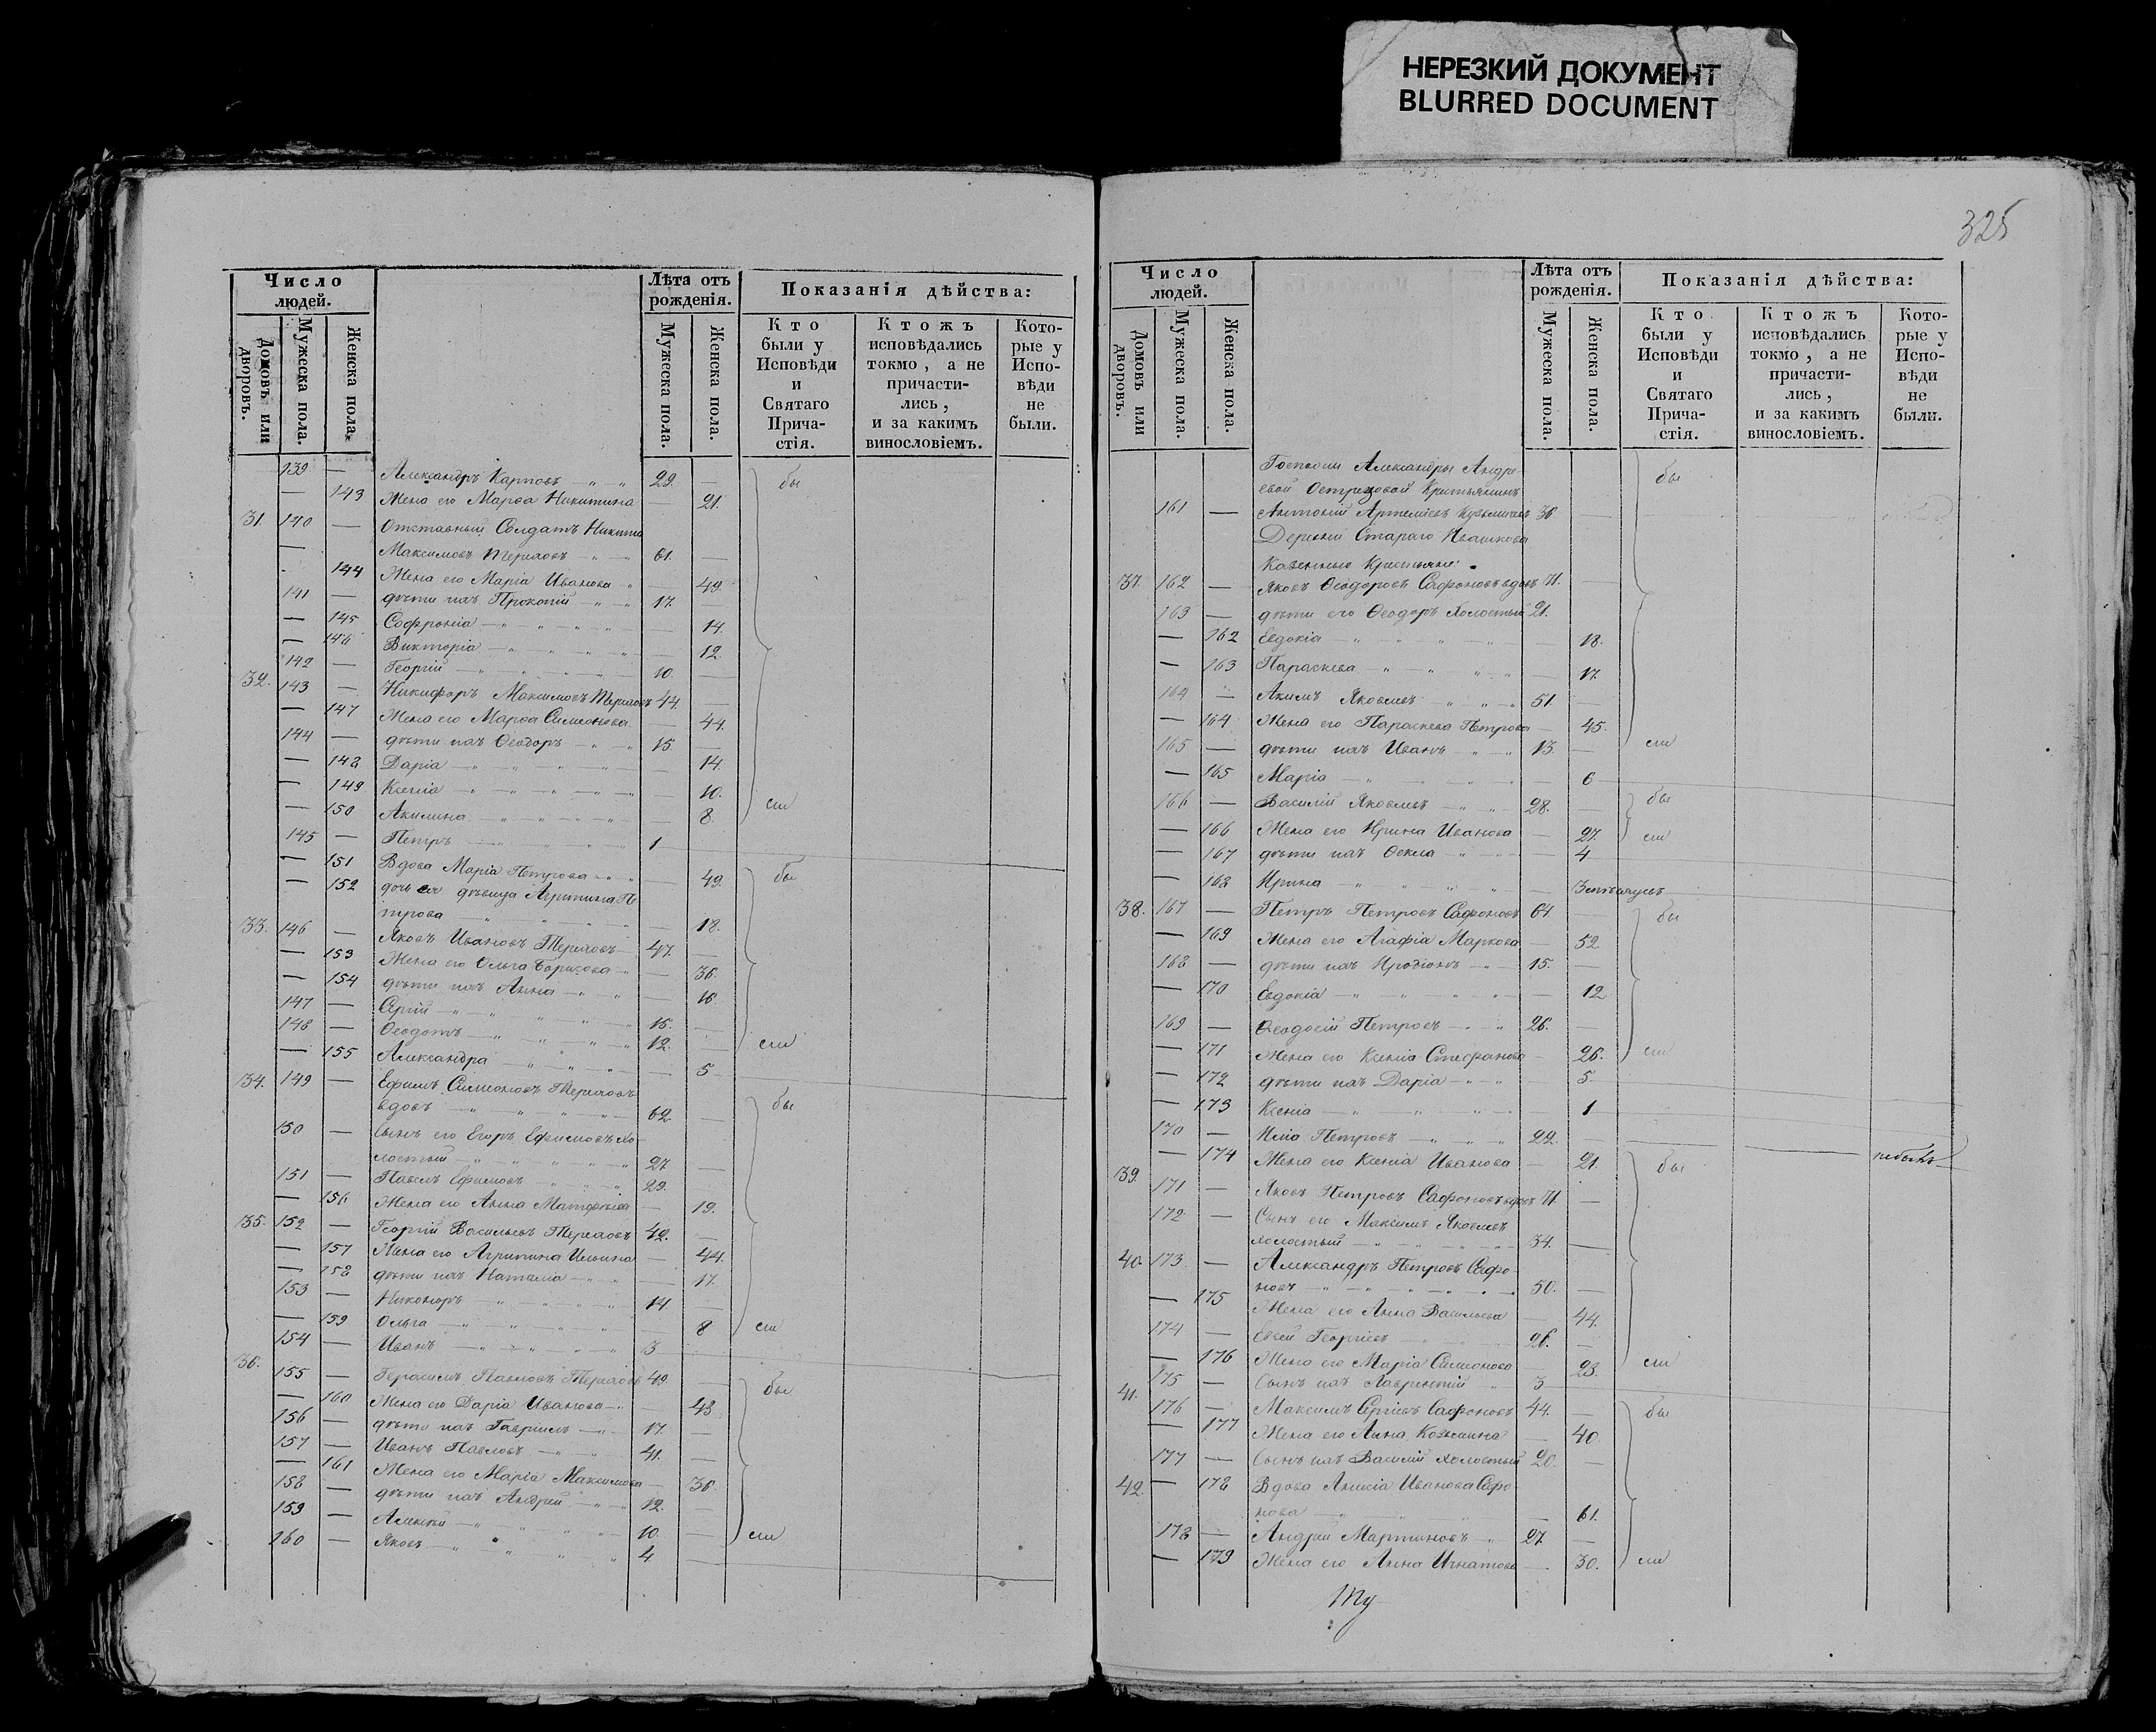 НЕРЕЗКИЙ ДОКУМЕНТ
BLURRED DOCUMENT
325
Число людей. Лѣта отъ рожденія. Показанія дѣйства:
Домовъ или дворовъ. Мужеска пола. Женска пола. Мужеска пола. Женска пола. Кто были у Исповѣди и Святаго Причастія. Ктожъ исповѣдались токмо, а не причастились, и за какимъ винословіемъ. Которые у Исповѣди не были.
139 — Александръ Карповъ 29. — бы
— 143 Жена его Марѳа Никитина — 21.
31. 140 — Отставный Солдатъ Никита
— Максимовъ 61. —
144 Жена его Марія Иванова — 49.
141 — дѣти ихъ Прокопій 17. —
— 145 Софронія — 14.
— 146 Викторія — 12.
142 — Георгій 10. —
32. 143 — Никифоръ Максимовъ 44. —
— 147 Жена его Марѳа Симеонова — 44.
144 — дѣти ихъ Ѳеодоръ 15 —
— 148 Дарія — 14.
— 149 Ксенія — 10.
— 150 Акилина — 8. ли
145 — Петръ 1
— 151 Вдова Марія Петрова — 49. бы
— 152 дочь ея дѣвица Агрипина Пе
трова — 18.
33. 146 — Яковъ Ивановъ 47. —
— 153 Жена его Ольга Борисова — 36.
— 154 дѣти ихъ Анна — 16.
147 — Сергій 15. —
148 — Ѳеодотъ 12. — ли
— 155 Александра — 5
34. 149 — Ефимъ Симеоновъ
вдовъ 62. — бы
150 — Сынъ его Егоръ Ефимовъ хо-
лостый 27 —
151 — Павелъ Ефимовъ 23. —
— 156 Жена его Анна Матфѣева — 19.
35. 152 — Георгій Васильевъ 42. —
— 157 Жена его Агрипина Ильина — 44.
— 158 дѣти ихъ Наталія — 17.
153 — Никоноръ 14 —
— 159 Ольга — 8 ли
154 — Иванъ 3
36. 155 — Герасимъ Павловъ 49. — бы
— 160 Жена его Дарія Иванова — 43
156 — дѣти ихъ Гавріилъ 17. —
157 — Иванъ Павловъ 41. —
— 161 Жена его Марія Максимова — 36.
158 — дѣти ихъ Андрей 12. —
159 — Алексѣй 10. — ли
160 — Яковъ 4
Число людей. Лѣта отъ рожденія. Показанія дѣйства:
Домовъ или дворовъ. Мужеска пола. Женска пола. Мужеска пола. Женска пола. Кто были у Исповѣди и Святаго Причастія. Ктожъ исповѣдались токмо, а не причастились, и за какимъ винословіемъ. Которые у Исповѣди не были.
Госпожи Александры Андре- бы
евой Крестьянинъ
161 — Антоній Артемьевъ 36. —
Деревни Стараго Ивашкова
Казенные Крестьяне:
37. 162 — Яковъ Ѳеодоровъ Сафоновъ вдовъ 71. —
163 — дѣти его Ѳеодоръ холостый 21.
— 162 Евдокія — 18.
— 163 Параскева — 17.
164 — Акимъ Яковлевъ 51. —
— 164 Жена его Параскева Петрова — 45.
165 — дѣти ихъ Иванъ 13. — ли
— 165 Марія — 6
166 — Василій Яковлевъ 28. — бы
— 166 Жена его Ирина Иванова — 27. ли
— 167 дѣти ихъ Ѳекла — 4
— 168 Ирина —
38. 167 — Петръ Петровъ Сафоновъ 64. — бы
— 169 Жена его Агафія Маркова — 52
168 — дѣти ихъ Иродіонъ 15. —
— 170 Евдокія — 12
169 — Ѳеодосій Петровъ 26. —
— 171 Жена его Ксенія Стефанова — 26. ли
— 172 дѣти ихъ Дарія — 5
— 173 Ксенія — 1
170 — Илія Петровъ 22. —
— 174 Жена его Ксенія Иванова — 21. бы
39. 171 — Яковъ Петровъ Сафоновъ вдовъ 71 —
172 — Сынъ его Максимъ Яковлевъ
холостый 34. —
40. 173 — Александръ Петровъ Сафо-
новъ 50. —
— 175 Жена его Анна Васильева — 44.
174 — Евсей Георгіевъ 26. —
— 176 Жена его Марія Симеонова — 23. ли
175 — Сынъ ихъ Лаврентій 3
41. 176 — Максимъ Сергіевъ Сафоновъ 44. — бы
— 177 Жена его Анна Козьмина — 40.
177 — Сынъ ихъ Василій холостый 20. —
42. — 178 Вдова Анисія Иванова Сафо-
нова — 61.
178 — Андрей Мартиновъ 27. —
— 179 Жена его Анна Игнатова — 30. ли